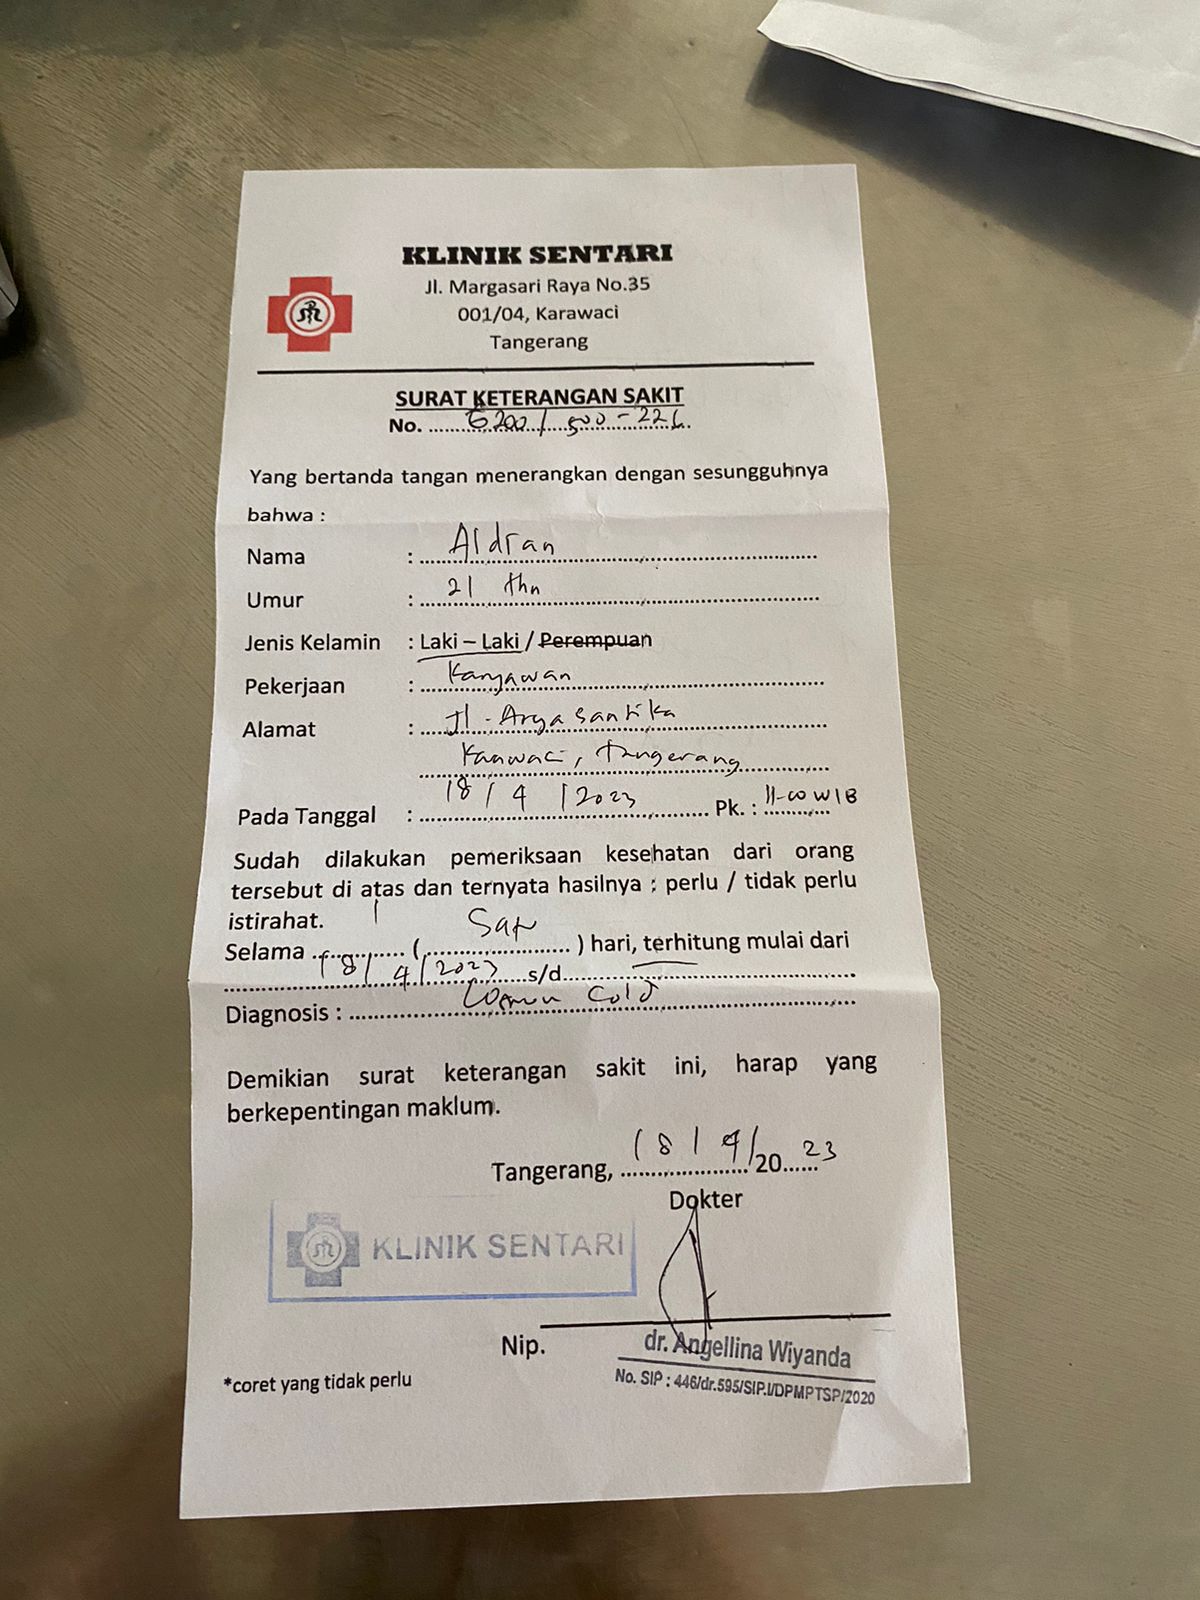 KLINIK SENTARI
Jl. Margasari Raya No.35
001/04, Karawaci
Tangerang
SURAT KETERANGAN SAKIT
No. ..........6200/.500-226..
Yang bertanda tangan menerangkan dengan sesungguhnya
bahwa :
Nama : Aldran
Umur : 21 thn
Jenis Kelamin : Laki – Laki / Perempuan
Pekerjaan : Karyawan
Alamat : Jl. Arya Santika
Karawaci, Tangerang
Pada Tanggal : 18/4/2023 Pk. : 11-00 WIB
Sudah dilakukan pemeriksaan kesehatan dari orang
tersebut di atas dan ternyata hasilnya : perlu / tidak perlu
istirahat.
Selama 1 (Satu) hari, terhitung mulai dari
18/4/2023 s/d
Diagnosis : Cold
Demikian surat keterangan sakit ini, harap yang
berkepentingan maklum.
Tangerang, 18/4/2023
Dokter
KLINIK SENTARI
Nip.
dr. Angellina Wiyanda
No. SIP : 446/dr.595/SIP.I/DPMPTSP/2020
*coret yang tidak perlu